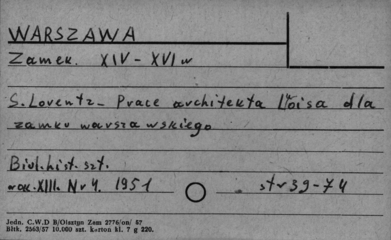 WARSZAWA
Zamek. XIV-XVI w
S. Lorentz - Prace architekta Löisa dla
zamku warszawskiego
Biul. hist. szt.
rok. XIII. Nr 4. 1951 str 39-74
Jedn. C.W.D B/Olsztyn Zam 2776/on/ 57
Bltk. 2563/57 10.000 szt. karton kl. 7 g 220.